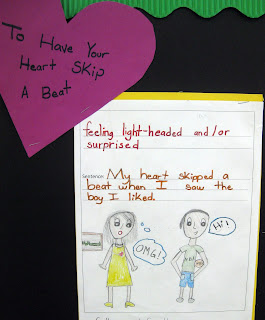 To Have Your
Heart Skip
A Beat
feeling light-headed and/or
surprised
Sentence: My heart skipped a
beat when I saw the
boy I liked.
OMG!
Hi!